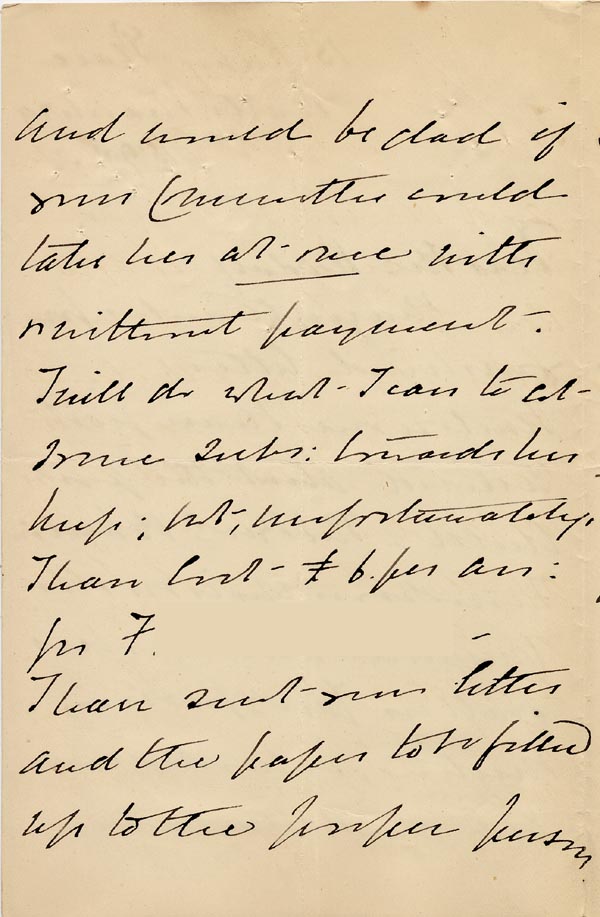 and would be glad if
your Committee could
take her at once with
or without payment.
I will do what I can to get
some subs: towards her
keep; but, unfortunately,
I have lost £6. per ann:
for F.
I have sent your letter
and the paper to be filled
up to the proper person